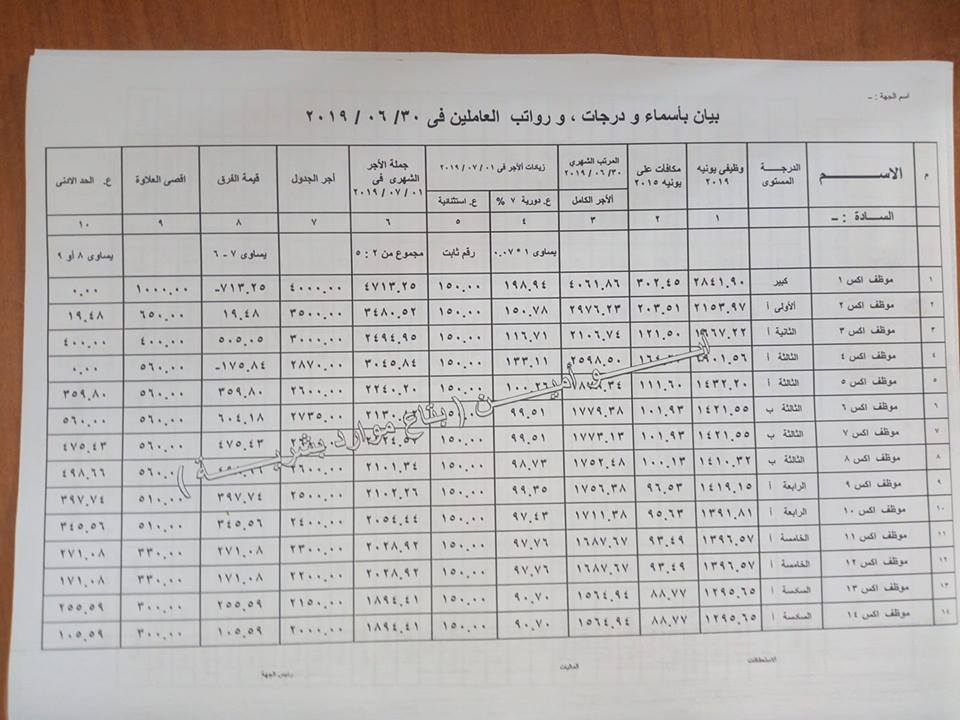 اسم الجهة : –
بيان بأسماء و درجات ، و رواتب العاملين فى ٣٠/ ٠٦ / ٢٠١٩
م الاســـم الدرجـــة المستوى وظيفى يونيه ٢٠١٩ مكافات على يونيه ٢٠١٥ المرتب الشهري ٣٠/ ٠٦ / ٢٠١٩ الأجر الكامل زيادات الأجر فى ٠١ / ٠٧ / ٢٠١٩ ع. دورية ٧ % ع. استثنائية جملة الأجر الشهرى فى ٠١ / ٠٧ / ٢٠١٩ أجر الجدول قيمة الفرق اقصى العلاوة ع. الحد الادنى
الســادة : – ١ ٢ ٣ ٤ ٥ ٦ ٧ ٨ ٩ ١٠
يساوى ١ * ٠.٠٧ رقم ثابت مجموع من ٢ : ٥ يساوى ٧ - ٦ يساوى ٨ أو ٩
١ موظف اكس ١ كبير ٢٨٤١.٩٠ ٣٠٢.٤٥ ٤٠٦١.٨٦ ١٩٨.٩٤ ١٥٠.٠٠ ٤٧١٣.٢٥ ٤٠٠٠.٠٠ ٧١٣.٢٥- ١٠٠٠.٠٠ ٠.٠٠
٢ موظف اكس ٢ الأولى أ ٢١٥٣.٩٧ ٢٠٣.٥١ ٢٩٧٦.٢٣ ١٥٠.٧٨ ١٥٠.٠٠ ٣٤٨٠.٥٢ ٣٥٠٠.٠٠ ١٩.٤٨ ٦٥٠.٠٠ ١٩.٤٨
٣ موظف اكس ٣ الثانية أ ١٦٦٧.٢٢ ١٢١.٥٠ ٢١٠٦.٧٤ ١١٦.٧١ ١٥٠.٠٠ ٢٤٩٤.٩٥ ٣٠٠٠.٠٠ ٥٠٥.٠٥ ٤٠٠.٠٠ ٤٠٠.٠٠
٤ موظف اكس ٤ الثالثة أ ٢٥٩٨.٥٠ ١٣٣.١١ ١٥٠.٠٠ ٣٠٤٥.٨٤ ٢٨٧٠.٠٠ ١٧٥.٨٤- ٥٦٠.٠٠ ٠.٠٠
٥ موظف اكس ٥ الثالثة أ ١٤٣٢.٢٠ ١١١.٦٠ ١٠٠.٢٦ ١٥٠.٠٠ ٢٢٤٠.٢٠ ٢٦٠٠.٠٠ ٣٥٩.٨٠ ٥٦٠.٠٠ ٣٥٩.٨٠
٦ موظف اكس ٦ الثالثة ب ١٤٢١.٥٥ ١٠١.٩٣ ١٧٧٩.٣٨ ٩٩.٥١ ٢٧٣٥.٠٠ ٦٠٤.١٨ ٥٦٠.٠٠ ٥٦٠.٠٠
٧ موظف اكس ٧ الثالثة ب ١٤٢١.٥٥ ١٠١.٩٣ ١٧٧٣.١٣ ٩٩.٥١ ١٥٠.٠٠ ٤٧٥.٤٣ ٥٦٠.٠٠ ٤٧٥.٤٣
٨ موظف اكس ٨ الثالثة ب ١٤١٠.٣٢ ١٠٠.١٣ ١٧٥٢.٤٨ ٩٨.٧٣ ١٥٠.٠٠ ٢١٠١.٣٤ ٢٦٠٠.٠٠ ٥٦٠.٠٠ ٤٩٨.٦٦
٩ موظف اكس ٩ الرابعة أ ١٤١٩.١٥ ٩٦.٥٣ ١٧٥٦.٣٨ ٩٩.٣٥ ١٥٠.٠٠ ٢١٠٢.٢٦ ٢٥٠٠.٠٠ ٣٩٧.٧٤ ٥١٠.٠٠ ٣٩٧.٧٤
١٠ موظف اكس ١٠ الرابعة أ ١٣٩١.٨١ ٩٥.٦٣ ١٧١١.٣٨ ٩٧.٤٣ ١٥٠.٠٠ ٢٠٥٤.٤٤ ٢٤٠٠.٠٠ ٣٤٥.٥٦ ٥١٠.٠٠ ٣٤٥.٥٦
١١ موظف اكس ١١ الخامسة أ ١٣٩٦.٥٧ ٩٣.٤٩ ١٦٨٧.٦٧ ٩٧.٧٦ ١٥٠.٠٠ ٢٠٢٨.٩٢ ٢٣٠٠.٠٠ ٢٧١.٠٨ ٣٣٠.٠٠ ٢٧١.٠٨
١٢ موظف اكس ١٢ الخامسة أ ١٣٩٦.٥٧ ٩٣.٤٩ ١٦٨٧.٦٧ ٩٧.٧٦ ١٥٠.٠٠ ٢٠٢٨.٩٢ ٢٢٠٠.٠٠ ١٧١.٠٨ ٣٣٠.٠٠ ١٧١.٠٨
١٣ موظف اكس ١٣ السادسة أ ١٢٩٥.٦٥ ٨٨.٧٧ ١٥٦٤.٩٤ ٩٠.٧٠ ١٥٠.٠٠ ١٨٩٤.٤١ ٢١٥٠.٠٠ ٢٥٥.٥٩ ٣٠٠.٠٠ ٢٥٥.٥٩
١٤ موظف اكس ١٤ السادسة أ ١٢٩٥.٦٥ ٨٨.٧٧ ١٥٦٤.٩٤ ٩٠.٧٠ ١٥٠.٠٠ ١٨٩٤.٤١ ٢٠٠٠.٠٠ ١٠٥.٥٩ ٣٠٠.٠٠ ١٠٥.٥٩
أبـــو أميـــن (بتاع موارد بشريـــة)
الاستحقاقات الماليات رئيس الجهة